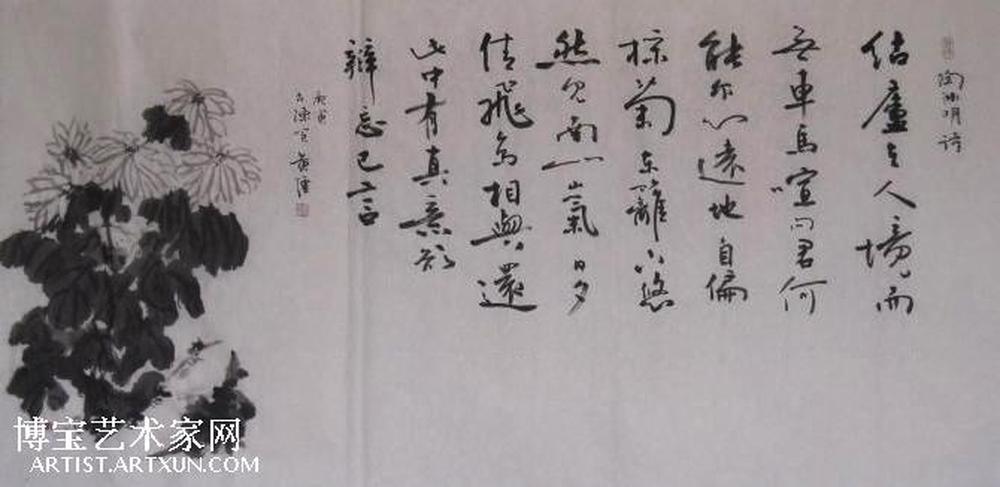 陶渊明诗
结廬在人境而
无車馬喧问君何
能尔心遠地自偏
採菊东籬下悠
然见南山山氣日夕
佳飛鸟相與還
此中有真意欲
辯忘已言
庚寅
博宝艺术家网
ARTIST.ARTXUN.COM